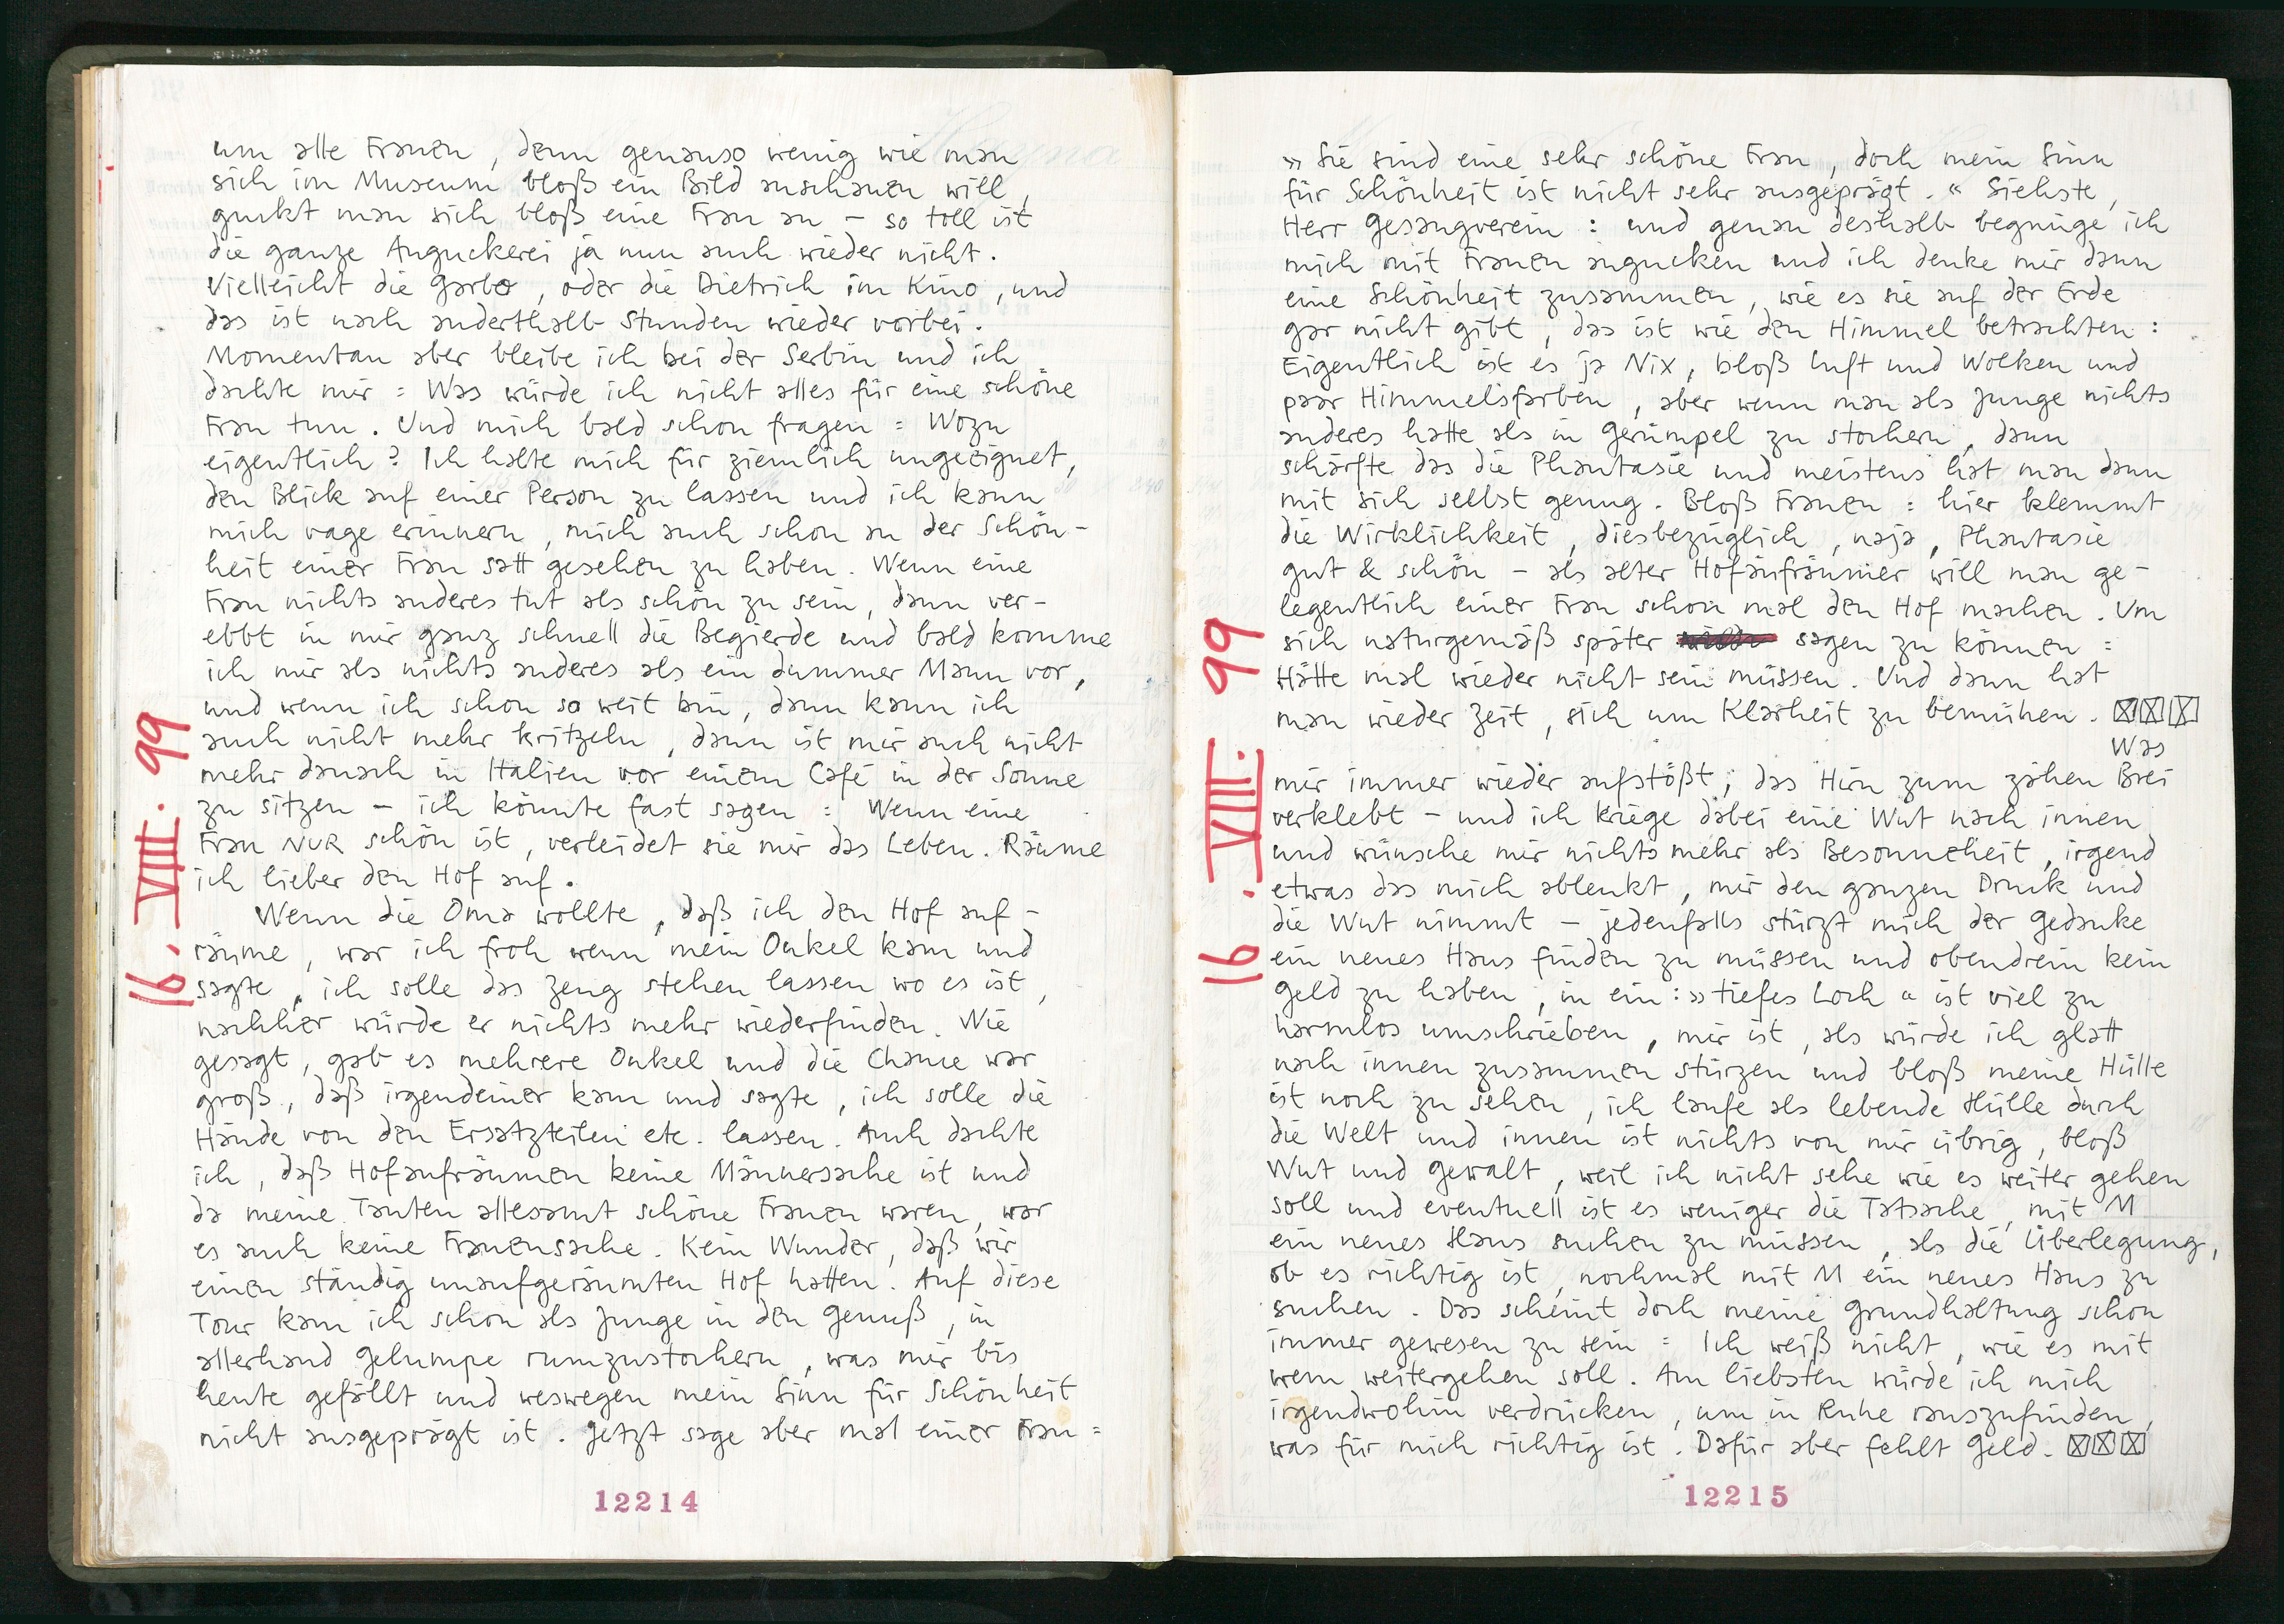 um alle Frauen, denn genauso wenig wie man
sich im Museum bloß ein Bild anschauen will,
guckt man sich bloß eine Frau an – so toll ist
die ganze Anguckerei ja nun auch wieder nicht.
Vielleicht die Garbo, oder die Dietrich im Kino, und
das ist nach anderthalb Stunden wieder vorbei.
Momentan aber bleibe ich bei der Serbin und ich
dachte mir: Was würde ich nicht alles für eine schöne
Frau tun. Und mich bald schon fragen: Wozu
eigentlich? Ich halte mich für ziemlich ungeeignet,
den Blick auf einer Person zu lassen und ich kann
mich vage erinnern, mich auch schon an der Schön-
heit einer Frau satt gesehen zu haben. Wenn eine
Frau nichts anderes tut als schön zu sein, dann ver-
ebbt in mir ganz schnell die Begierde und bald komme
ich mir als nichts anderes als ein dummer Mann vor,
und wenn ich schon so weit bin, dann kann ich
auch nicht mehr kritzeln, dann ist mir auch nicht
mehr danach in Italien vor einem Café in der Sonne
zu sitzen – ich könnte fast sagen: Wenn eine
Frau NUR schön ist, verleidet sie mir das Leben. Räume
ich lieber den Hof auf.
Wenn die Oma wollte, daß ich den Hof auf-
räume, war ich froh wenn mein Onkel kam und
sagte, ich solle das Zeug stehen lassen wo es ist,
nachher würde er nichts mehr wiederfinden. Wie
gesagt, gab es mehrere Onkel und die Chance war
groß, daß irgendeiner kam und sagte, ich solle die
Hände von den Ersatzteilen etc. lassen. Auch dachte
ich, daß Hofaufräumen keine Männersache ist und
da meine Tanten allesamt schöne Frauen waren, war
es auch keine Frauensache. Kein Wunder, daß wir
einen ständig unaufgeräumten Hof hatten. Auf diese
Tour kam ich schon als Junge in den Genuß, in
allerhand Gelumpe rumzustochern, was mir bis
heute gefällt und weswegen mein Sinn für Schönheit
nicht ausgeprägt ist. Jetzt sage aber mal einer Frau:
16. VIII. 99
12214
»Sie sind eine sehr schöne Frau, doch mein Sinn
für Schönheit ist nicht sehr ausgeprägt.« Siehste,
Herr Gesangverein: und genau deshalb begnüge ich
mich mit Frauen angucken und ich denke mir dann
eine Schönheit zusammen, wie es sie auf der Erde
gar nicht gibt, das ist wie den Himmel betrachten:
Eigentlich ist es ja Nix, bloß Luft und Wolken und
paar Himmelsfarben, aber wenn man als Junge nichts
anderes hatte als in Gerümpel zu stochern, dann
schärfte das die Phantasie und meistens hat man dann
mit sich selbst genug. Bloß Frauen: hier klemmt
die Wirklichkeit, diesbezüglich, naja, Phantasie
gut & schön – als alter Hofaufräumer will man ge-
legentlich einer Frau schon mal den Hof machen. Um
sich naturgemäß später sagen zu können:
Hätte mal wieder nicht sein müssen. Und dann hat
man wieder Zeit, sich um Klarheit zu bemühen. ☒☒☒
Was
mir immer wieder aufstößt; das Hirn zum zähen Brei
verklebt – und ich kriege dabei eine Wut nach innen
und wünsche mir nichts mehr als Besonnenheit, irgend
etwas das mich ablenkt, mir den ganzen Druck und
die Wut nimmt – jedenfalls stürzt mich der Gedanke
ein neues Haus finden zu müssen und obendrein kein
Geld zu haben, in ein: »tiefes Loch« ist viel zu
harmlos umschrieben, mir ist, als würde ich glatt
nach innen zusammen stürzen und bloß meine Hülle
ist noch zu sehen, ich laufe als lebende Hülle durch
die Welt und innen ist nichts von mir übrig, bloß
Wut und Gewalt, weil ich nicht sehe wie es weiter gehen
soll und eventuell ist es weniger die Tatsache, mit M
ein neues Haus suchen zu müssen, als die Überlegung,
ob es richtig ist, nochmal mit M ein neues Haus zu
suchen. Das scheint doch meine Grundhaltung schon
immer gewesen zu sein: Ich weiß nicht, wie es mit
wem weitergehen soll. Am liebsten würde ich mich
irgendwohin verdrücken, um in Ruhe rauszufinden,
was für mich richtig ist. Dafür aber fehlt Geld. ☒☒☒
16. VIII. 99
12215